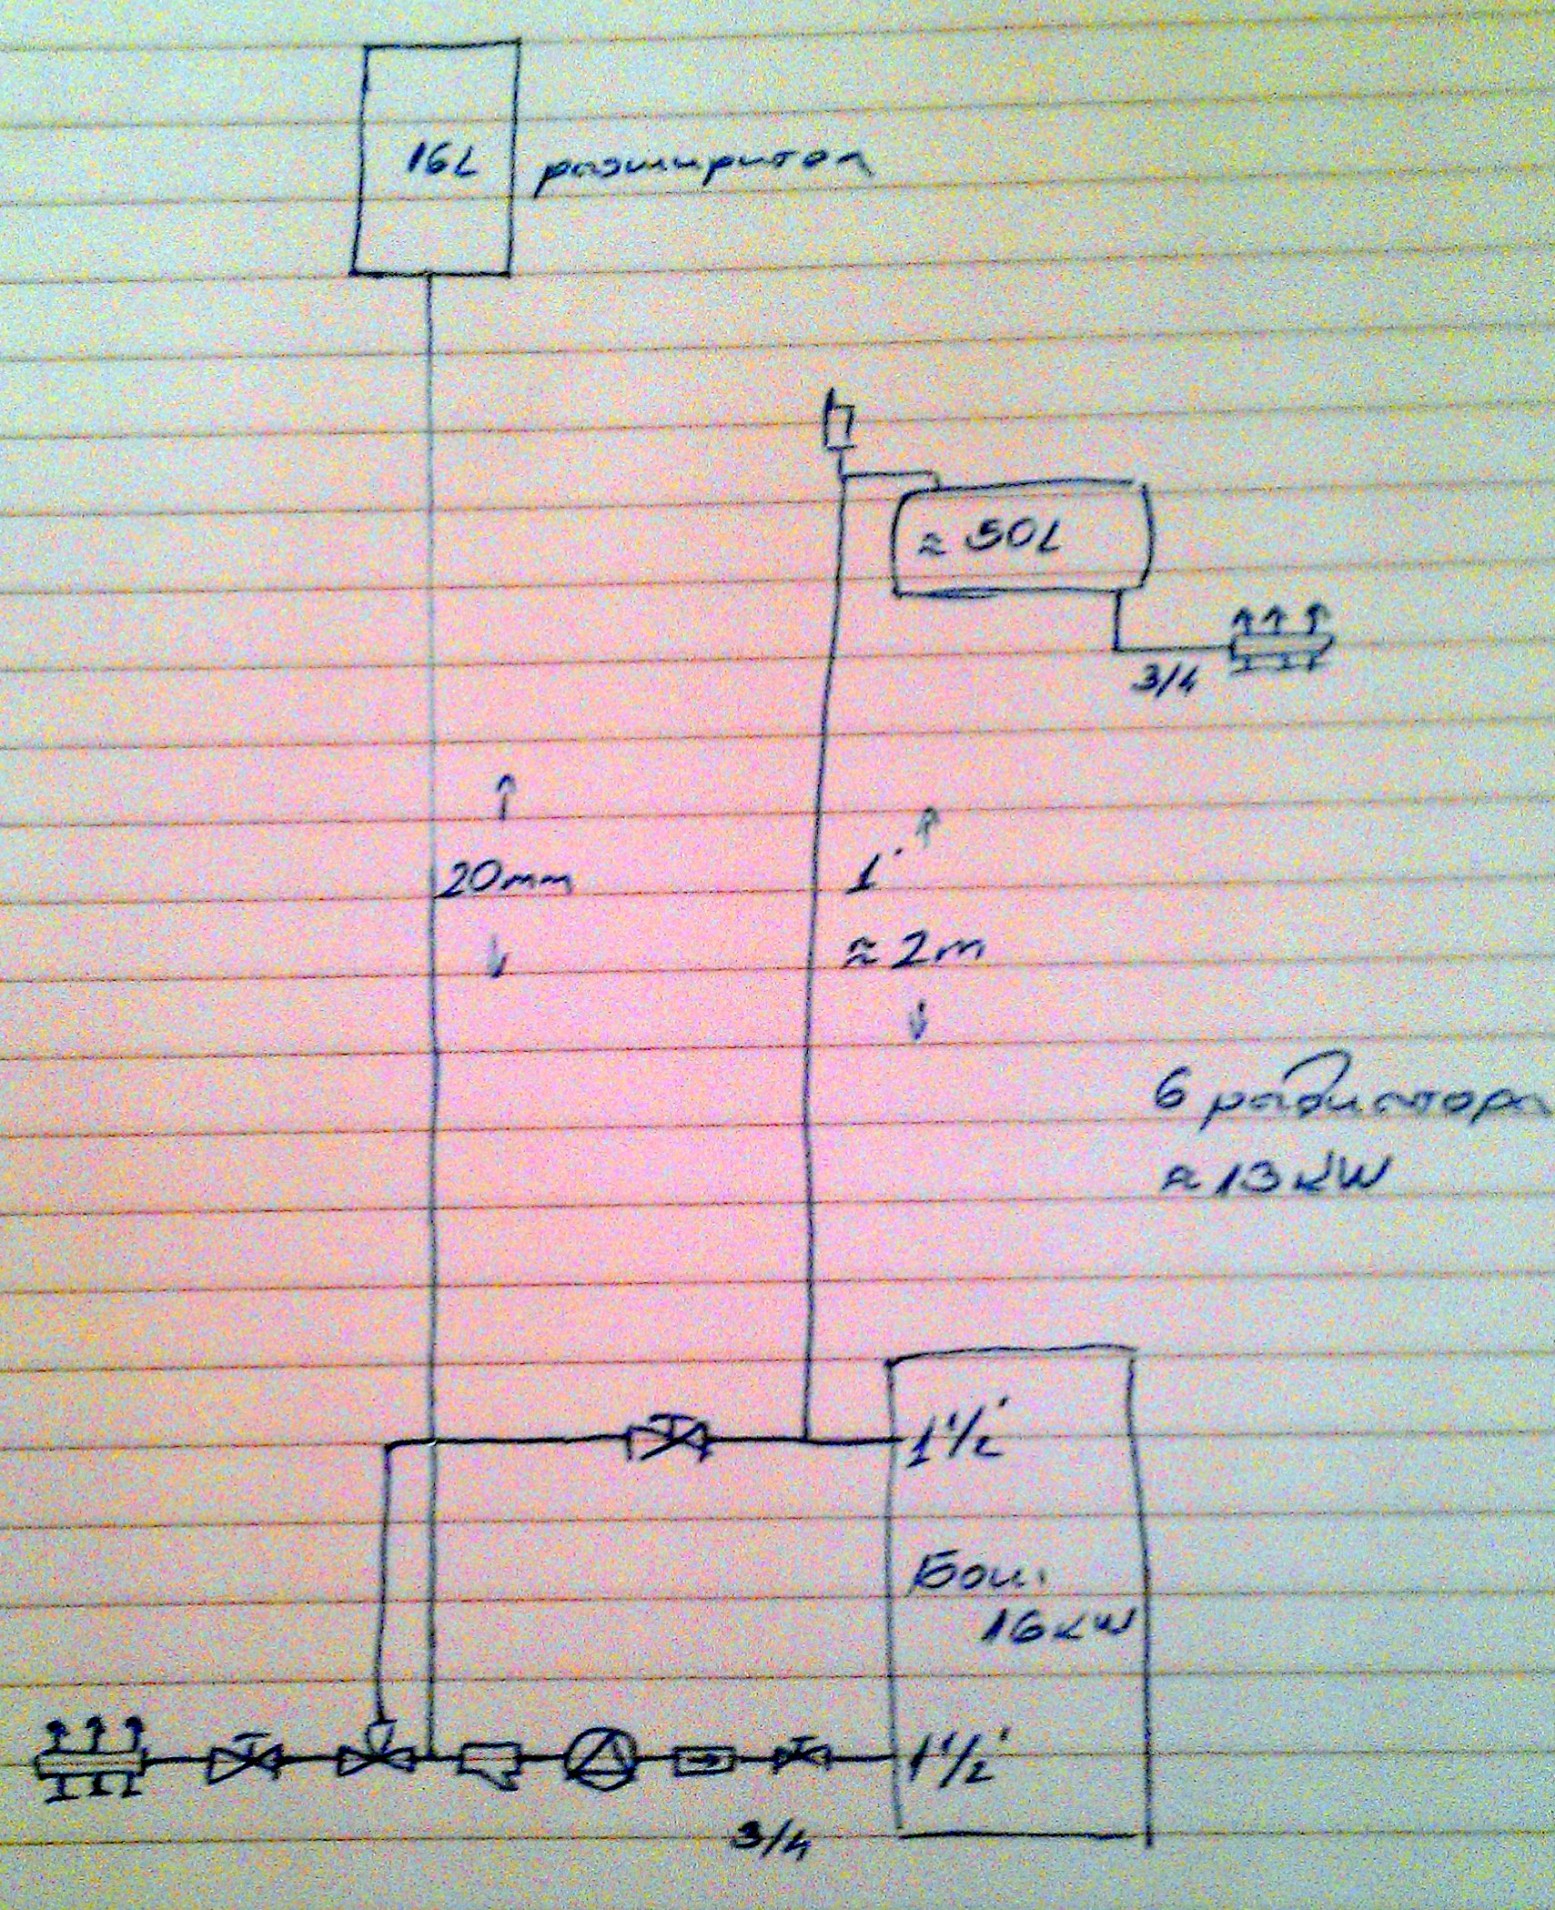 16L
разширител
≈ 50L
3/4
20mm
1"
≈ 2m
6 радиатора
≈ 13 kW
1 1/2"
Бой.
16 kW
1 1/2"
3/4